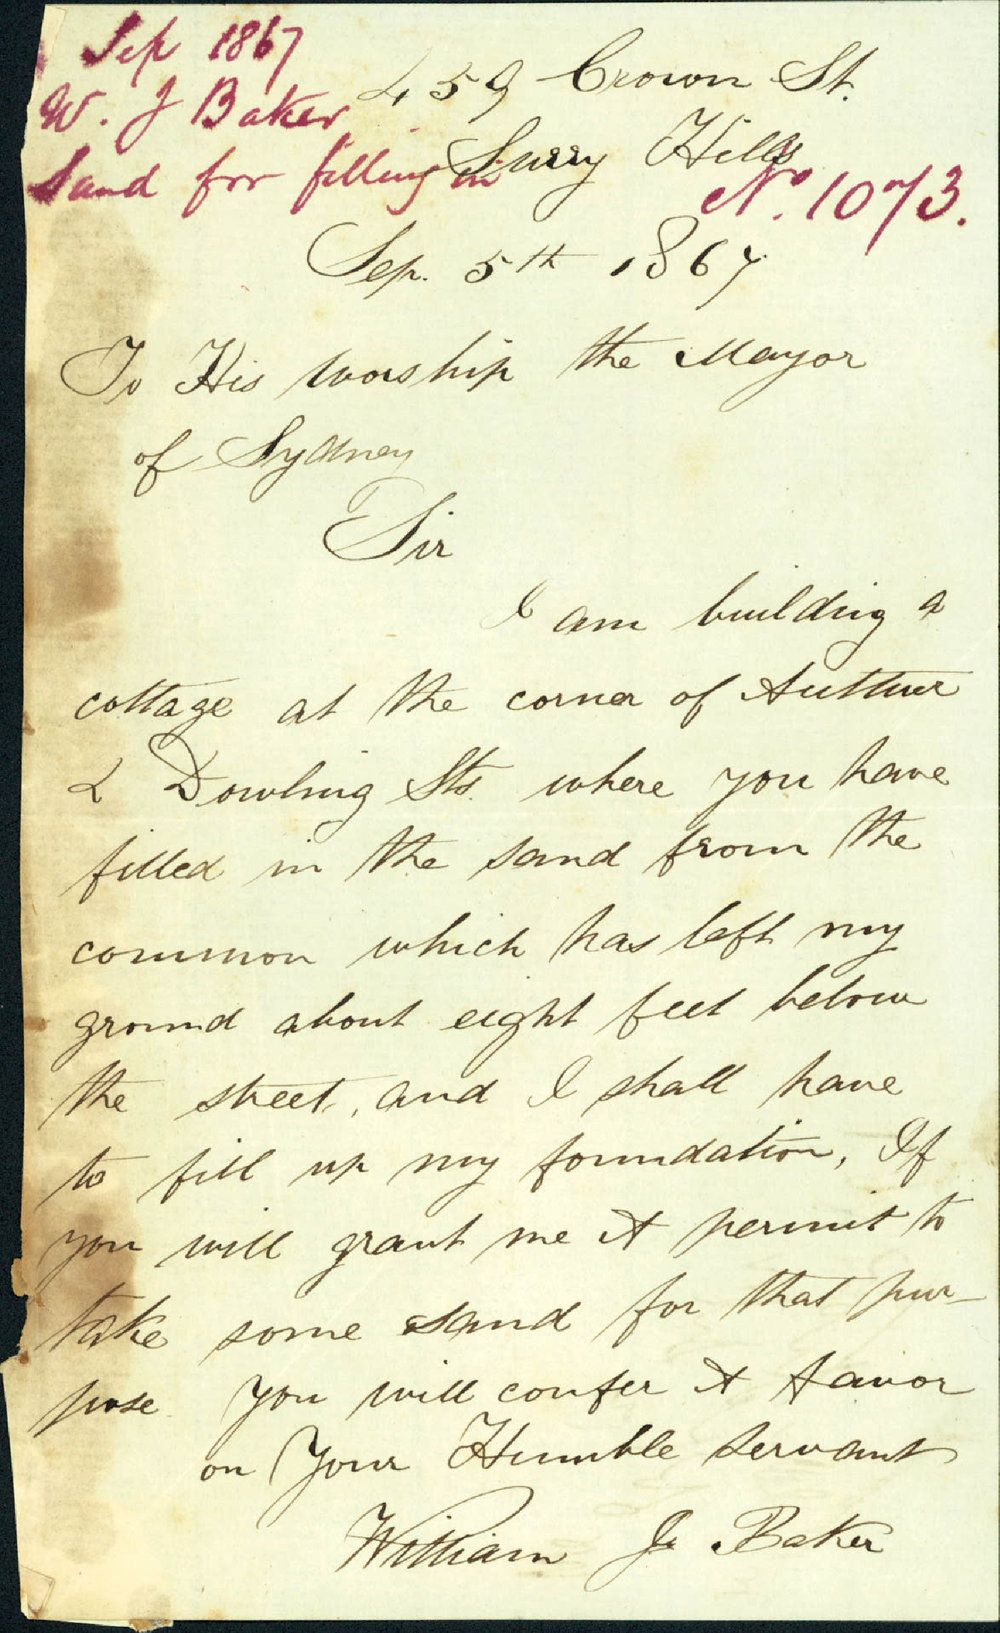 Sep 1867
W. J Baker
Sand for filling in
459 Crown St.
Surry Hills
No. 1073.
Sep. 5th 1867
To His Worship the Mayor
of Sydney
Sir
I am building a
cottage at the corner of Arthur
& Dowling Sts. where you have
filled in the sand from the
common which has left my
ground about eight feet below
the street, and I shall have
to fill up my foundation, If
you will grant me A permit to
take some sand for that pur-
pose you will confer A favor
on Your Humble Servant
William J. Baker